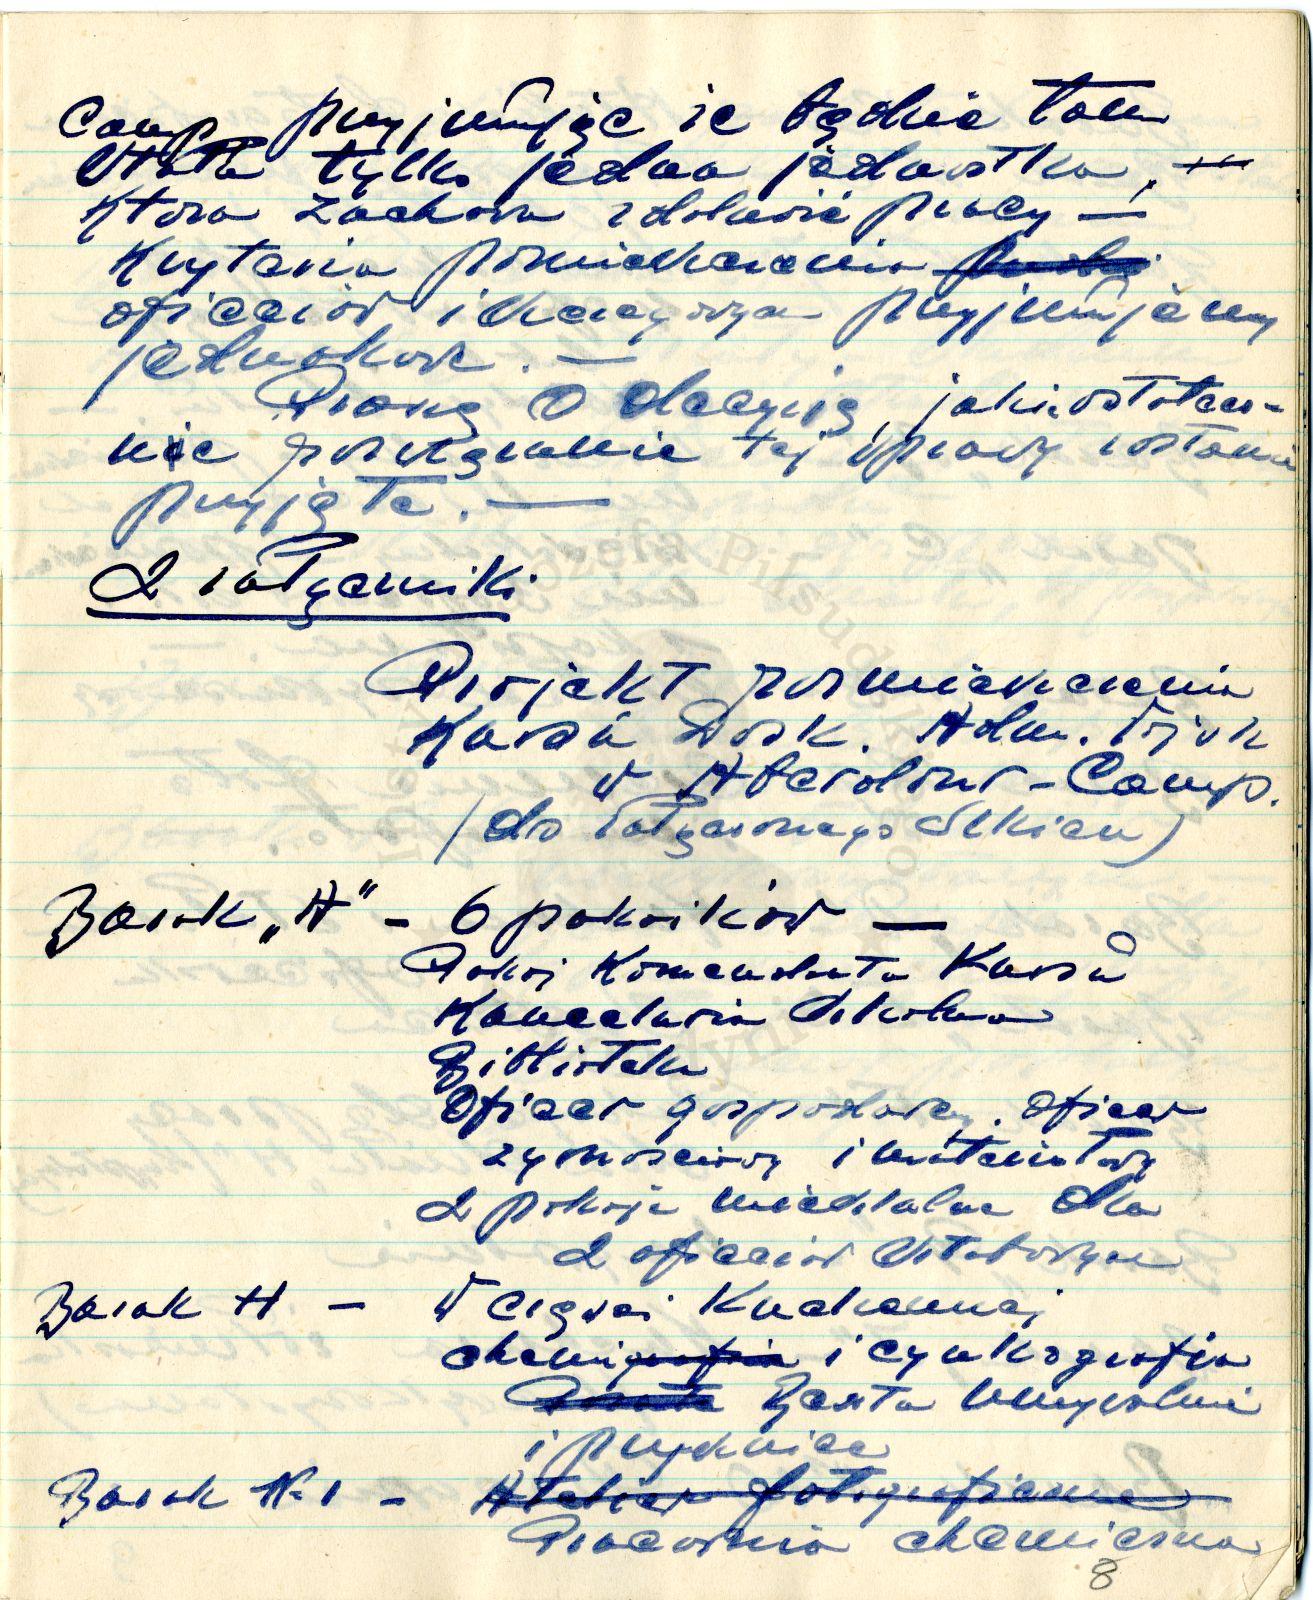 Camp, przyjmując że będzie tam
stała tylko jedna jednostka,
która zachowa zdolność pracy —
Kryteria pomieszczenia
oficerów i szeregowych przyjmujemy
jednakowe. —
Proszę o decyzję, jakie ostatecz-
nie rozwiązanie tej sprawy zostanie
przyjęte. —
2 załączniki
Projekt rozmieszczenia
Kursu Dosk. Adm. Wojsk
w Aberdour - Camp.
(do załączonego szkicu)
Barak „A" - 6 pokoików —
Pokój Komendanta Kursu
Kancelaria Szkolna
Biblioteka
Oficer gospodarczy, oficer
żywnościowy i materiałowy
2 pokoje mieszkalne dla
2 oficerów sztabowych
Barak H — W części kuchennej
chemigrafia i cynkografia
Reszta umywalnie
i prysznice
Barak № 1 - Atelier fotograficzne
Pracownia chemiczna
8